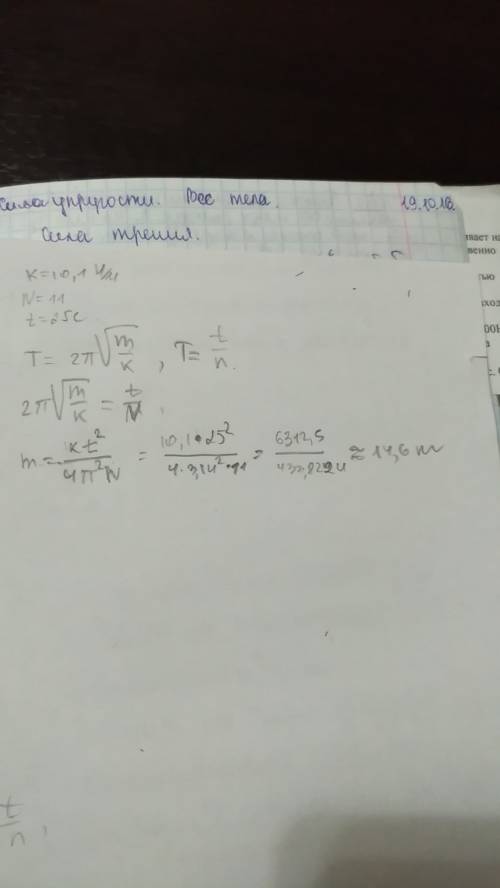 Сила упругости. Вес тела. 19.10.18
Сила трения.
K=10,1 Н/м
N=11
t=25с
T= 2π√(m/K) , T= t/n.
2π√(m/K) = t/N ,
m= Kt²/4π²N = 10,1•25²/4•3,14²•11 = 6312,5/433,8224 ≈ 14,6 м
t/n ,